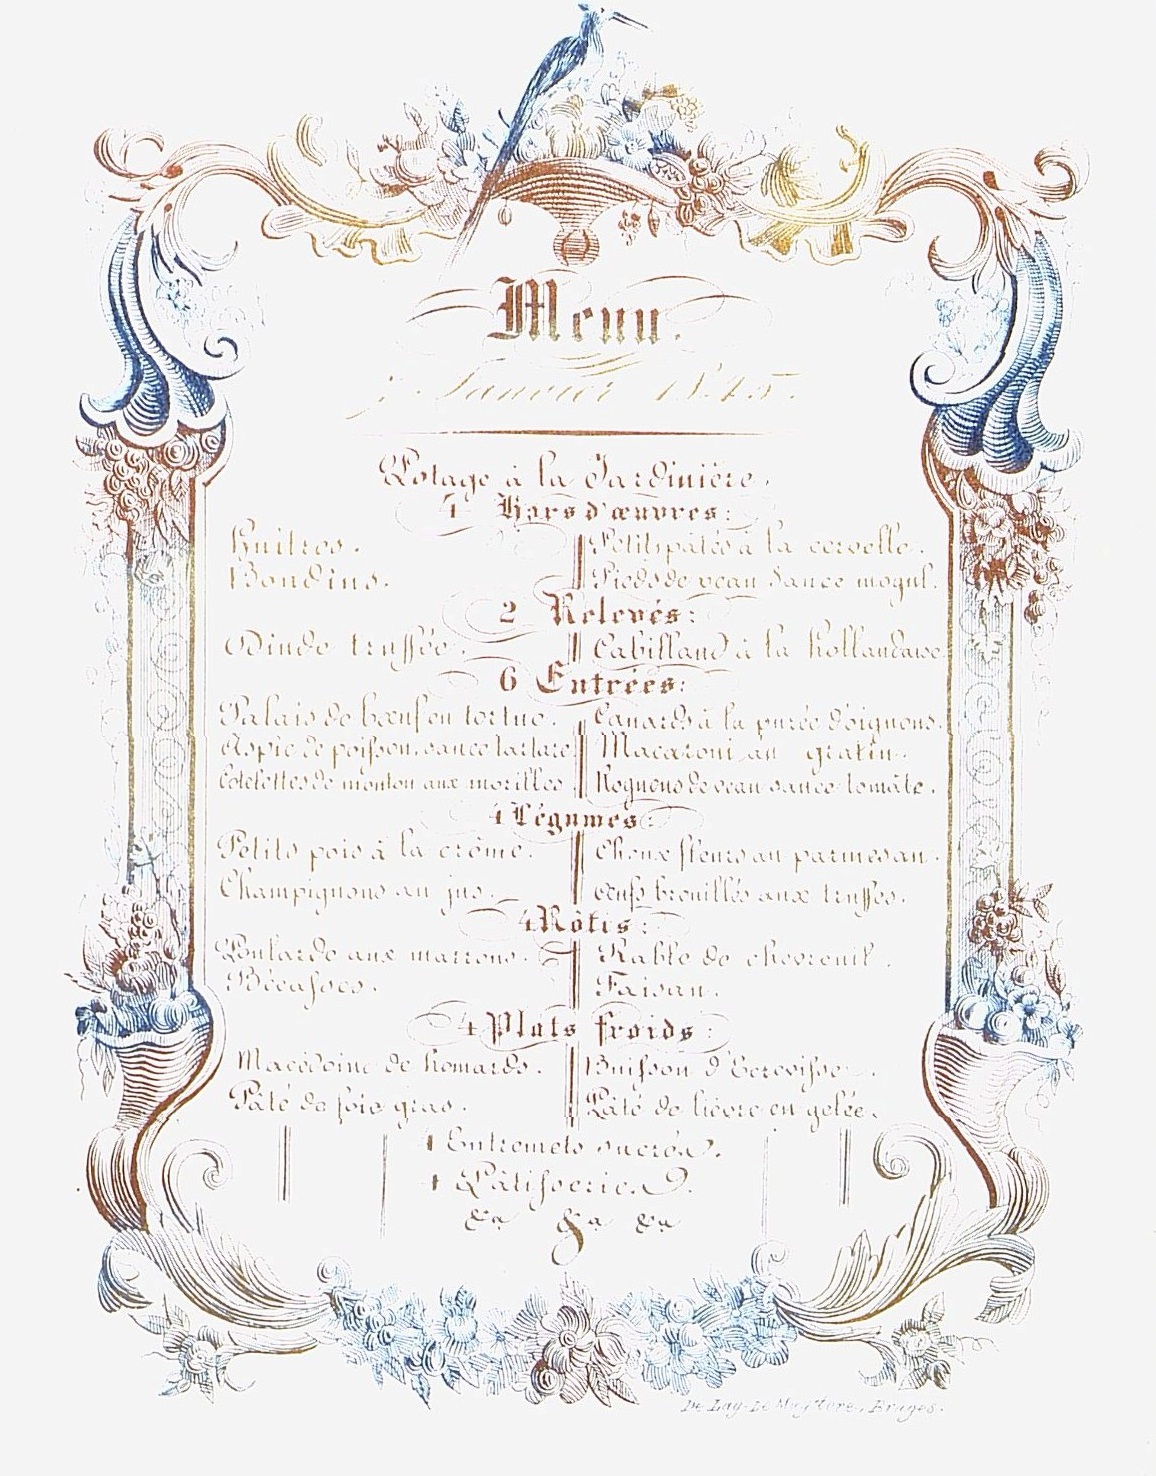 Menu.
Janvier 1845.
Potage à la Jardinière.
4 Hors d'œuvres:
Huîtres. Petits pâtés à la cervelle.
Boudins. Pieds de veau sauce mogul.
2 Relevés:
Dinde truffée. Cabillaud à la hollandaise
6 Entrées:
Palais de bœuf en tortue. Canards à la purée d'oignons.
Aspic de poisson, sauce tartare Macaroni au gratin.
Cotelettes de mouton aux morilles Rognons de veau sauce tomate.
4 Légumes:
Petits pois à la crême. Choux fleurs au parmesan.
Champignons au jus. Œufs brouillés aux truffes.
4 Rôtis:
Poularde aux marrons. Rable de chevreuil.
Bécasses. Faisan.
4 Plats froids:
Macédoine de homards. Buisson d'Ecrevisse.
Pâté de foie gras. Pâté de lièvre en gelée.
4 Entremets sucrés.
4 Pâtisseries.
&a &a &a
De Lay-De Muyttere, Bruges.